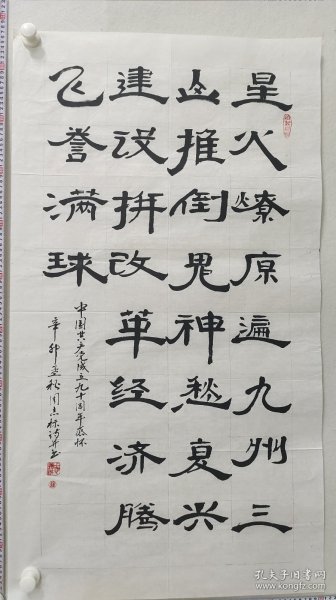 星火燎原遍九州三
山推倒鬼神愁夏兴
建设拼改革经济腾
飞誉满球
中国共产党成立九十周年感怀
辛卯孟秋周志林诗并书
孔夫子旧书网